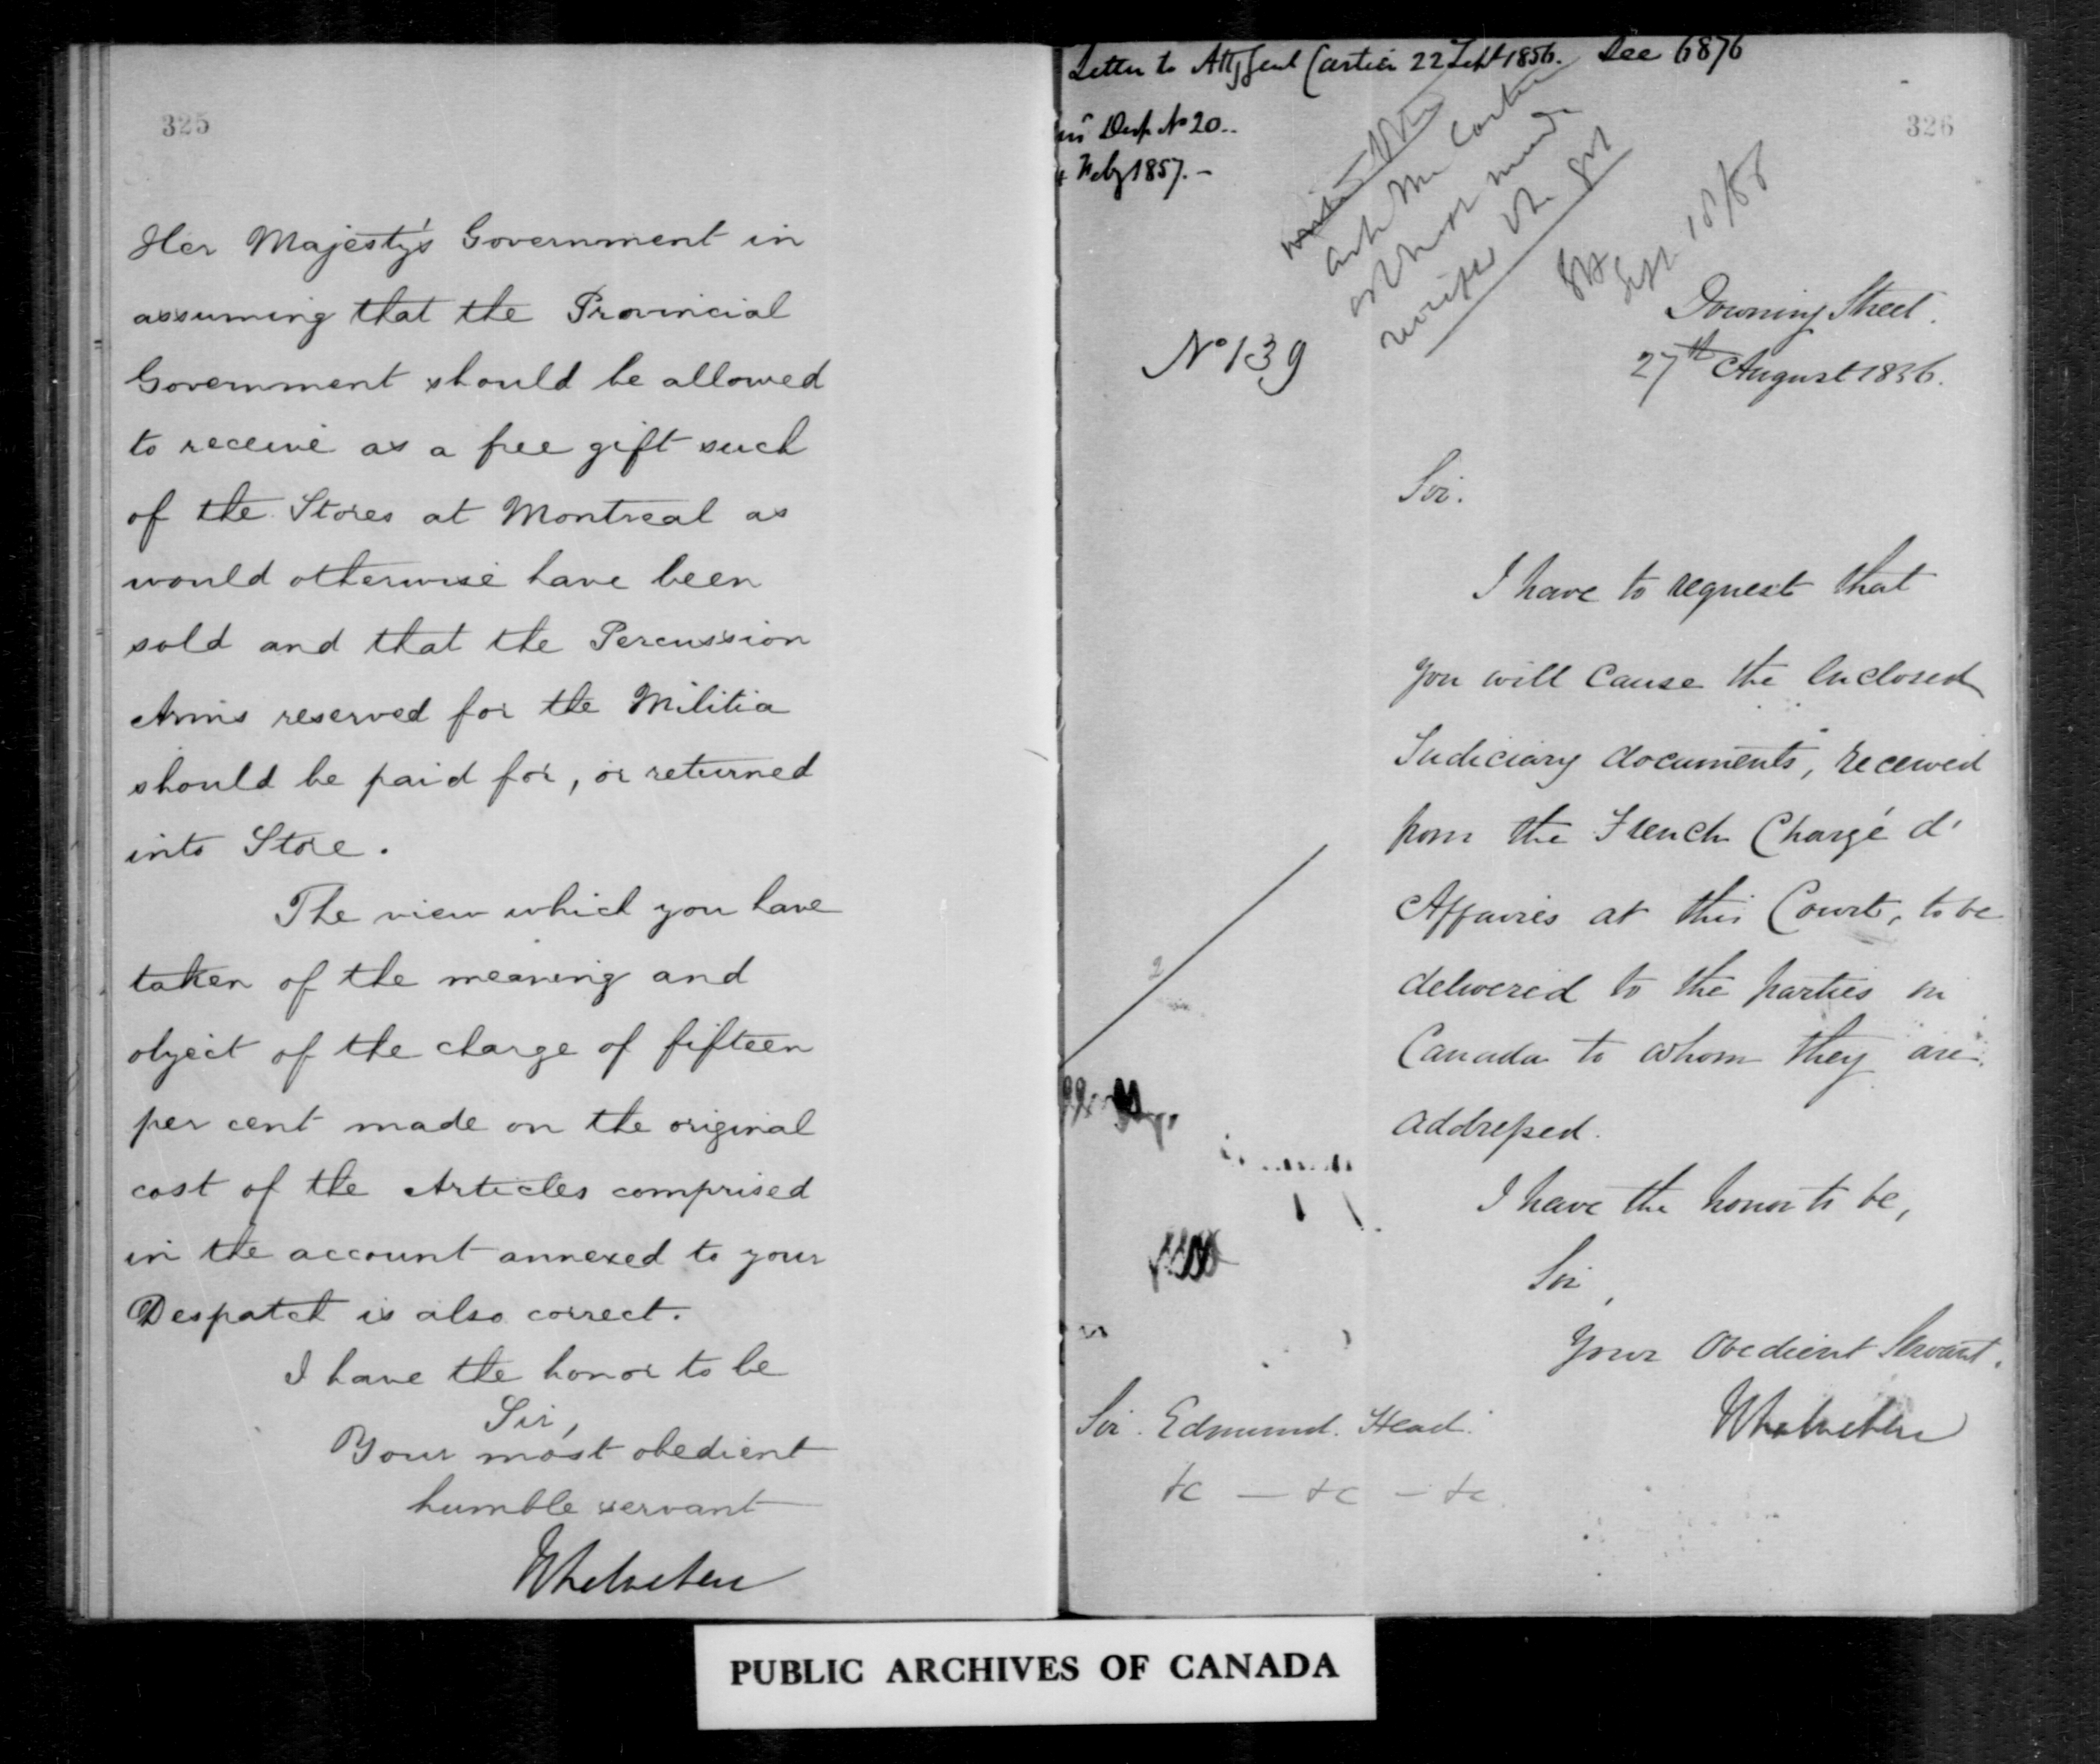 325
Her Majesty's Government in
assuming that the Provincial
Government should be allowed
to receive as a free gift such
of the Stores at Montreal as
would otherwise have been
sold and that the Percussion
Arms reserved for the Militia
should be paid for, or returned
into Store.
The view which you have
taken of the meaning and
object of the charge of fifteen
per cent made on the original
cost of the Articles comprised
in the account annexed to your
Despatch is also correct.
I have the honor to be
Sir,
Your most obedient
humble servant
Letter to Atty Genl Cartier 22 Sept 1856. See 6876
Desp. No 20..
Feby 1857. -
326
No 139
Downing Street.
27th August 1856.
Sir.
I have to request that
you will cause the enclosed
Judiciary documents, received
from the French Chargé d'
Affaires at this Court, to be
delivered to the parties in
Canada to whom they are
addressed.
I have the honor to be,
Sir,
Your Obedient Servant.
Sir. Edmund. Head.
&c — &c — &c
PUBLIC ARCHIVES OF CANADA